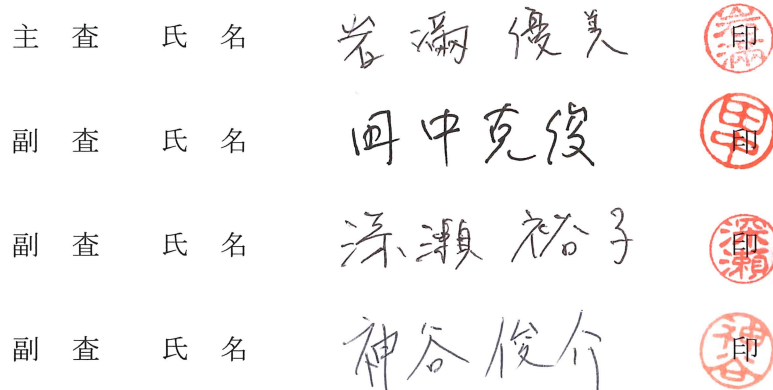 主査 氏名 岩滿優美 印
副査 氏名 田中克俊 印
副査 氏名 深瀬裕子 印
副査 氏名 神谷俊介 印